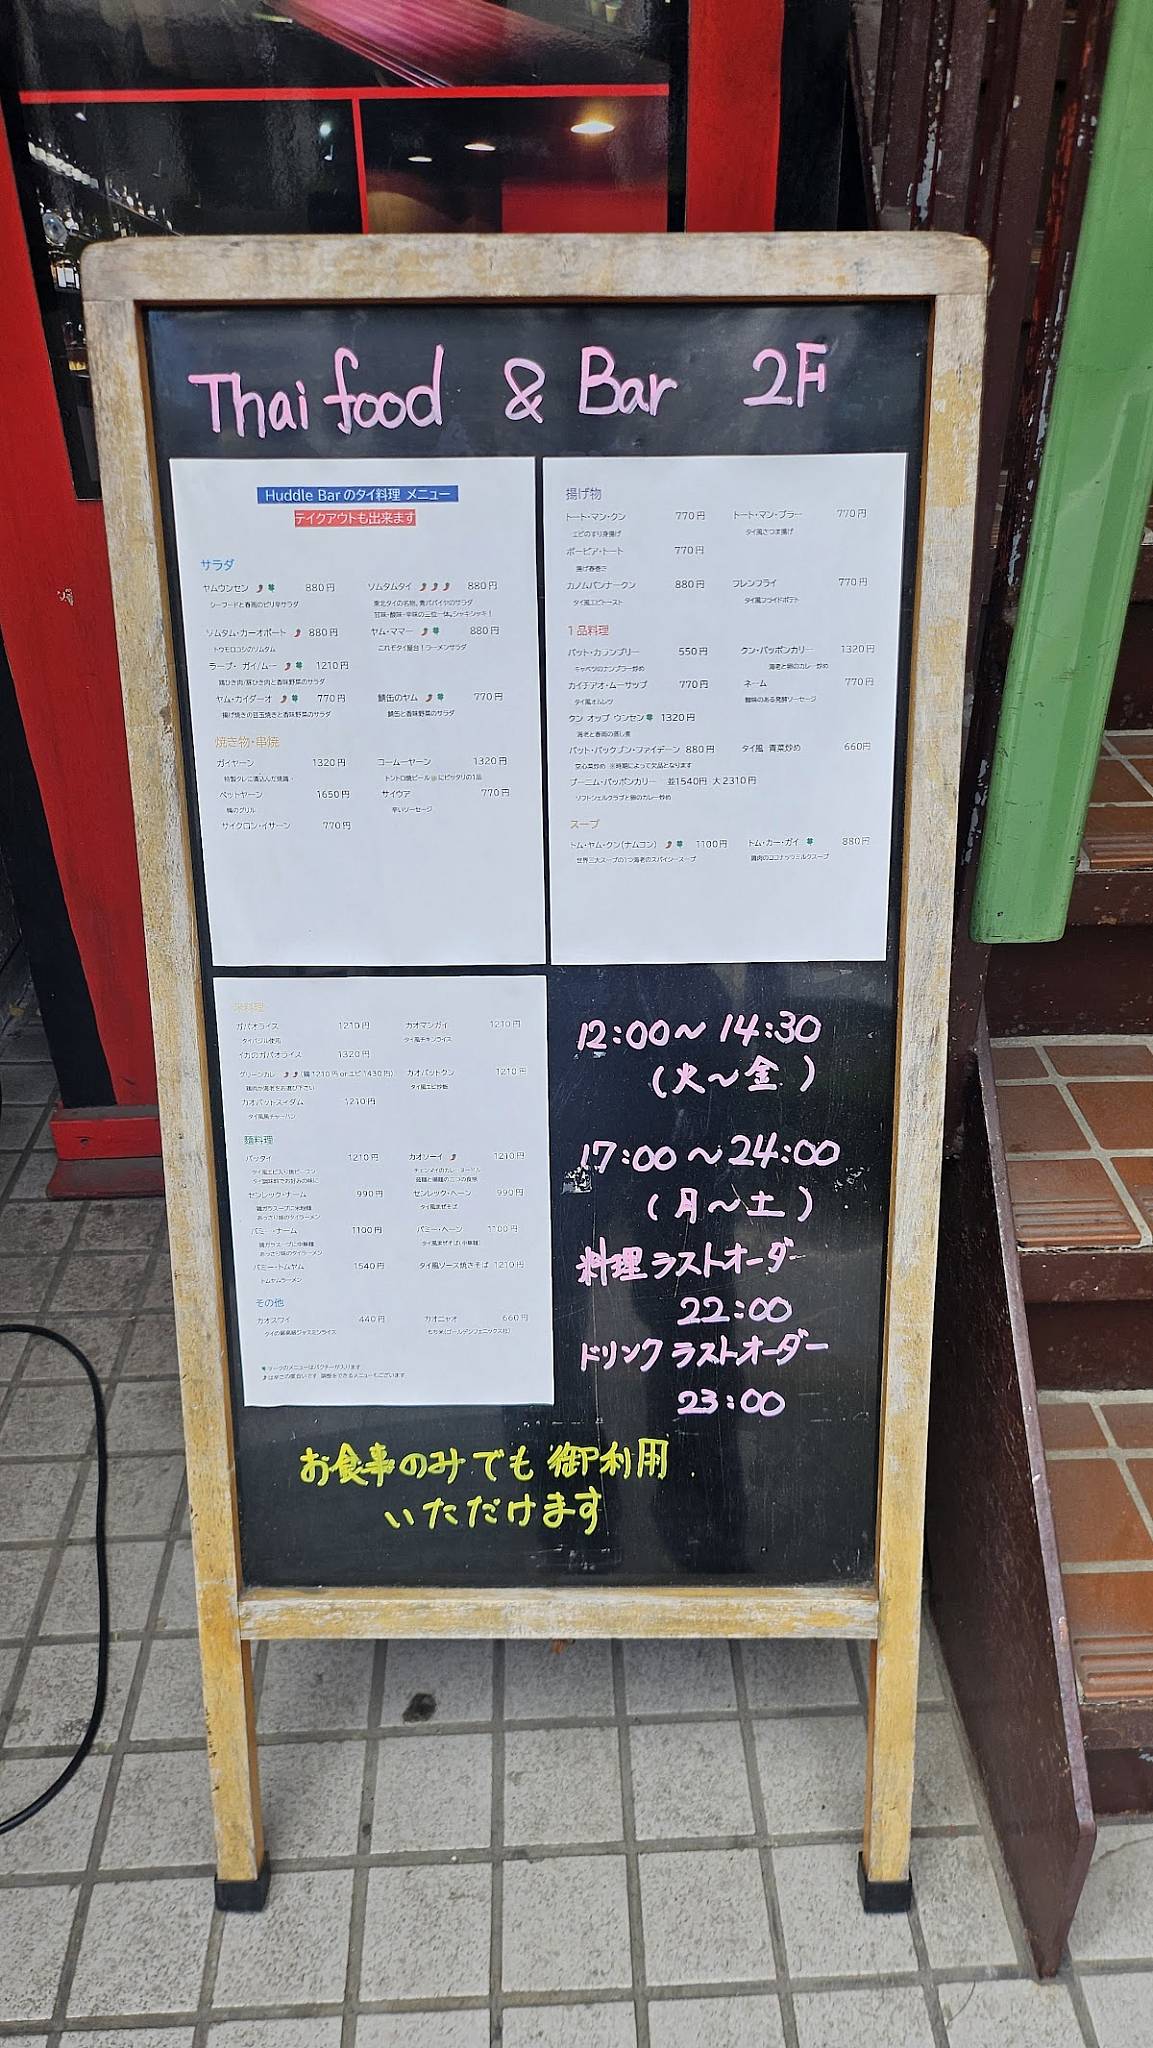 Thai food & Bar 2F
Huddle Bar のタイ料理 メニュー
テイクアウトも出来ます
サラダ
ヤムウンセン 880円 ソムタムタイ 880円
シーフードと春雨のピリ辛サラダ 東北タイの名物。青パパイヤのサラダ
甘味・酸味・辛味の三位一体。シャキシャキ!
ソムタム・カーオポート 880円 ヤム・ママー 880円
トウモロコシのソムタム これぞタイ屋台!ラーメンサラダ
ラープ・ガイ/ムー 1210円
鶏ひき肉/豚ひき肉と香味野菜のサラダ
ヤム・カイダーオ 770円 鯖缶のヤム 770円
揚げ焼きの目玉焼きと香味野菜のサラダ 鯖缶と香味野菜のサラダ
焼き物・串焼
ガイヤーン 1320円 コームーヤーン 1320円
特製タレに漬込んだ焼鶏・ トントロ焼ビールにピッタリの1品
ペットヤーン 1650円 サイウア 770円
鴨のグリル 辛いソーセージ
サイクロン・イサーン 770円
揚げ物
トート・マン・クン 770円 トート・マン・プラー 770円
エビのすり身揚げ タイ風さつま揚げ
ポーピア・トート 770円
揚げ春巻き
カノムパンナークン 880円 フレンフライ 770円
タイ風エビトースト タイ風フライドポテト
1品料理
パット・カランプリー 550円 クン・パッポンカリー 1320円
キャベツのナンプラー炒め 海老と卵のカレー炒め
カイヂアオ・ムーサップ 770円 ネーム 770円
タイ風オムレツ 酸味のある発酵ソーセージ
クン オップ ウンセン 1320円
海老と春雨の蒸し煮
パット・パックブン・ファイデーン 880円 タイ風 青菜炒め 660円
空心菜炒め ※時期によって欠品となります
プーニム・パッポンカリー 並1540円 大2310円
ソフトシェルクラブと卵のカレー炒め
スープ
トム・ヤム・クン(ナムコン) 1100円 トム・カー・ガイ 880円
世界三大スープの1つ海老のスパイシースープ 鶏肉のココナッツミルクスープ
米料理
ガパオライス 1210円 カオマンガイ 1210円
タイバジル使用 タイ風チキンライス
イカのガパオライス 1320円
グリーンカレー (鶏1210円 or エビ1430円) カオパットクン 1210円
鶏肉か海老をお選び下さい タイ風エビ炒飯
カオパットスイダム 1210円
麺料理
パッタイ 1210円 カオソーイ 1210円
センレック・ナーム 990円 センレック・ヘーン 990円
鶏ガラスープに米粉麺 タイ風まぜそば
あっさり味のタイラーメン
バミー・ナーム 1100円 バミー・ヘーン 1100円
鶏ガラスープに中華麺 タイ風まぜそば(中華麺)
あっさり味のタイラーメン
バミー・トムヤム 1540円 タイ風ソース焼きそば 1210円
トムヤムラーメン
その他
カオスワイ 440円 カオニャオ 660円
タイの最高級ジャスミンライス もち米(ゴールデンフェニックス社)
マークのメニューはパクチーが入ります
は辛さの度合いです 調整をできるメニューもございます
12:00～14:30
(火～金)
17:00～24:00
(月～土)
料理ラストオーダー
22:00
ドリンクラストオーダー
23:00
お食事のみでも御利用
いただけます